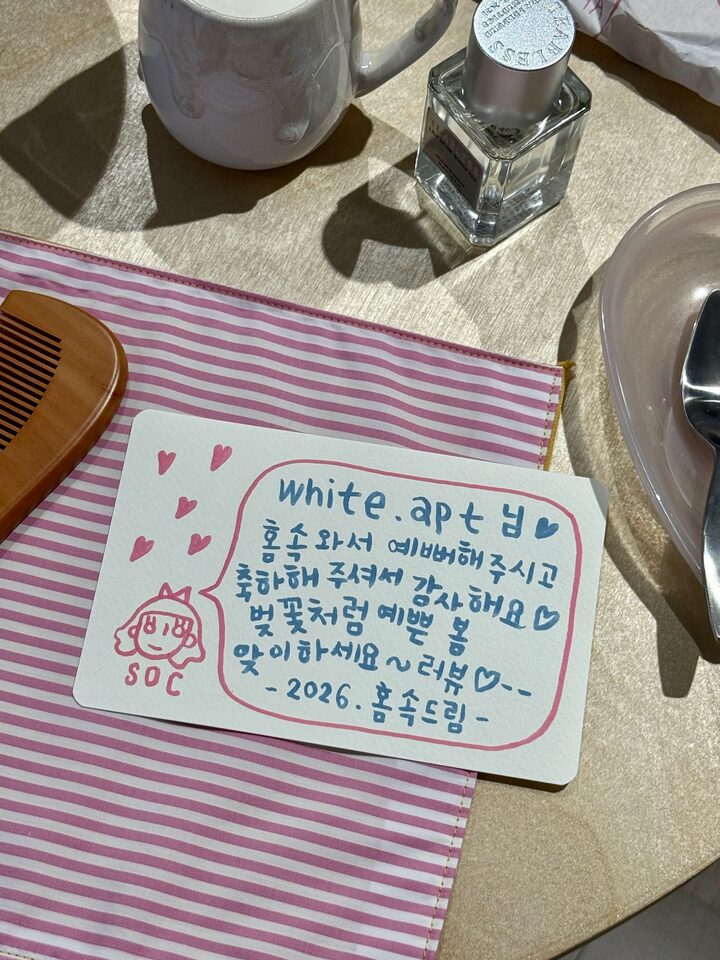 white.apt 님♥
홈속 와서 예뻐해주시고
축하해 주셔서 감사해요♡
벚꽃처럼 예쁜 봄
맞이하세요~ 러뷰♡--
-2026. 홈속드림-
SOC